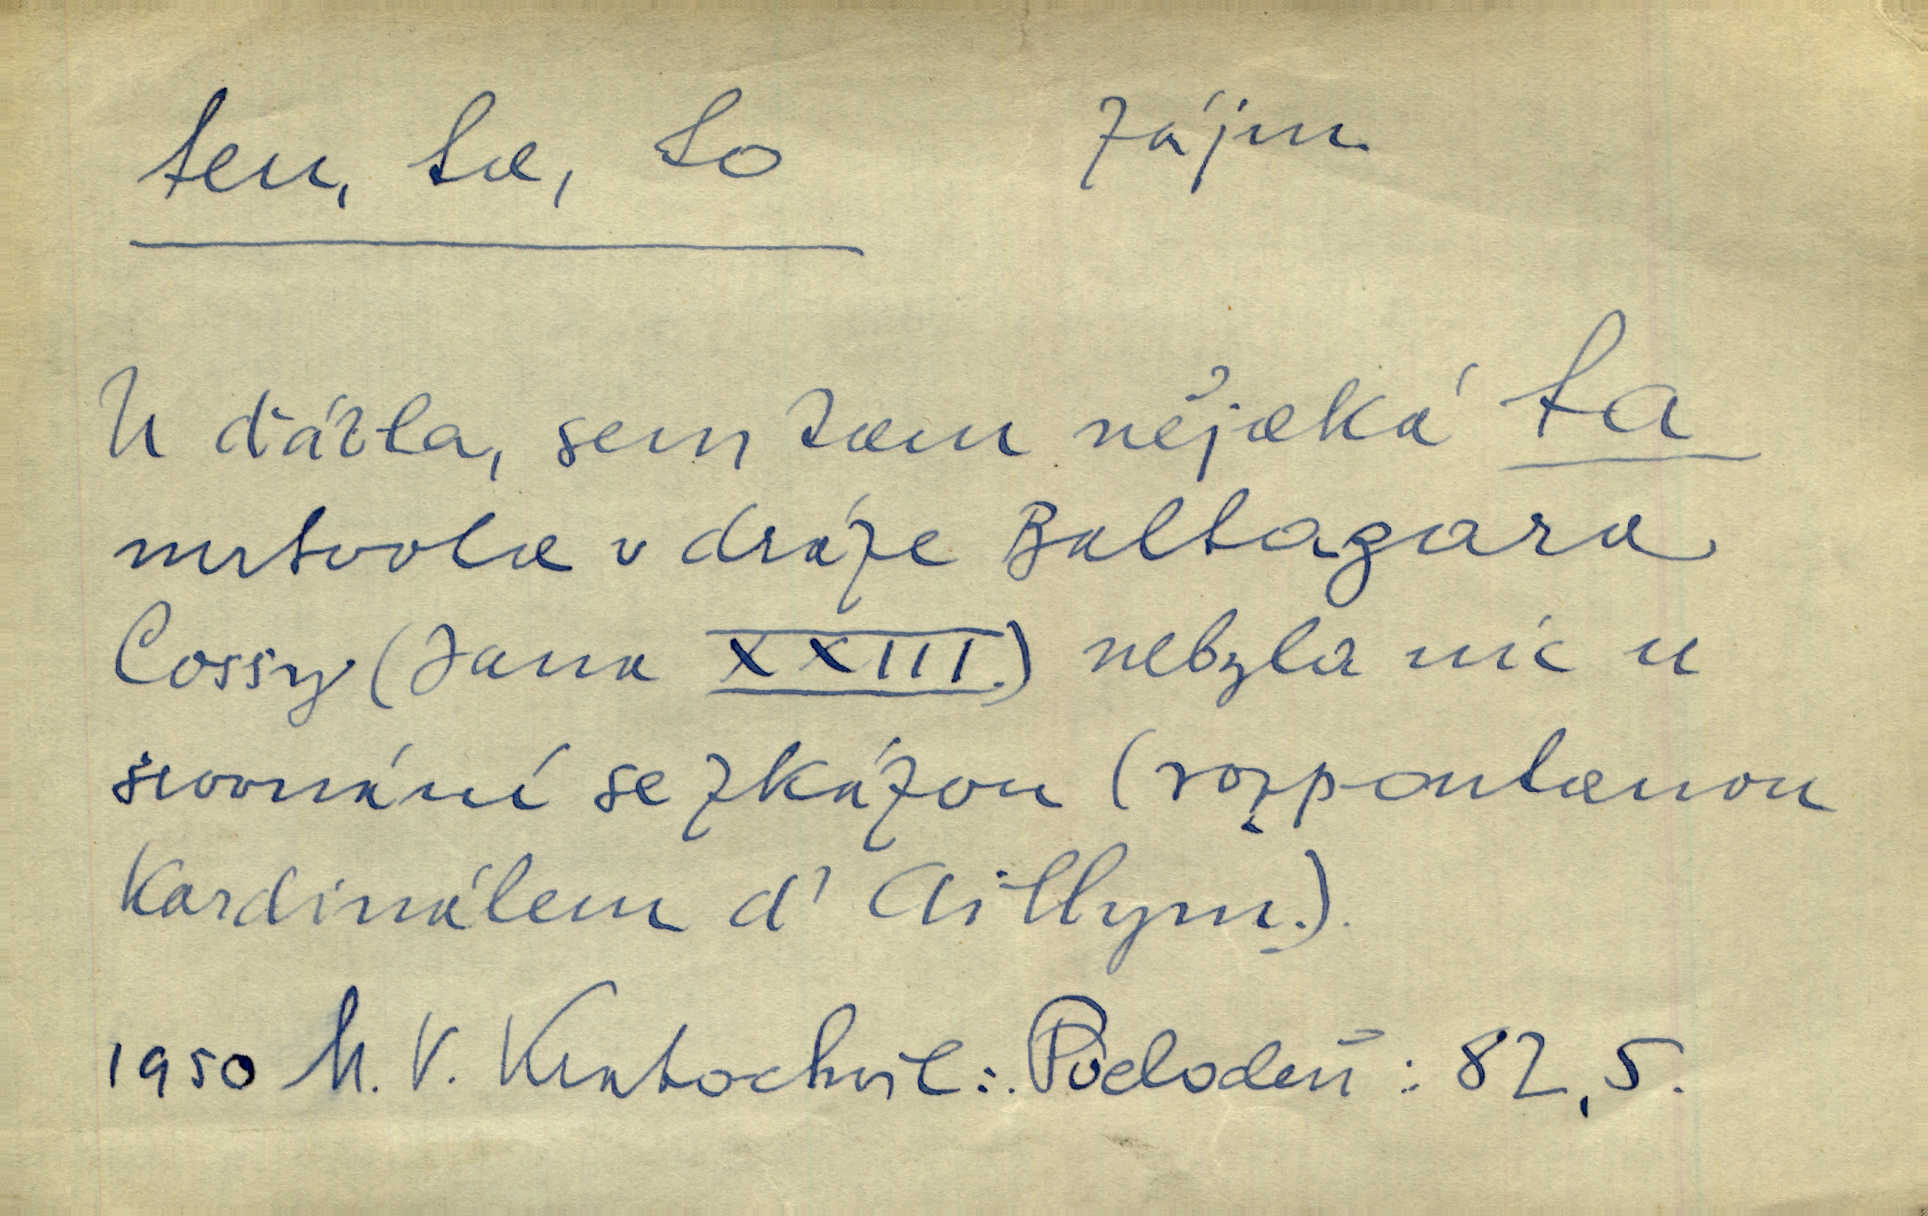 ten, ta, to zájm.
U ďábla, sem tam nějaká ta
mrtvola v dráze Baltazara
Cossy (Jana XXIII.) nebyla nic u
srovnání se zkázou (rozpoutanou
Kardinálem d' Aillym.).
1950 M. V. Kratochvíl: Pochodeň: 82, 5.